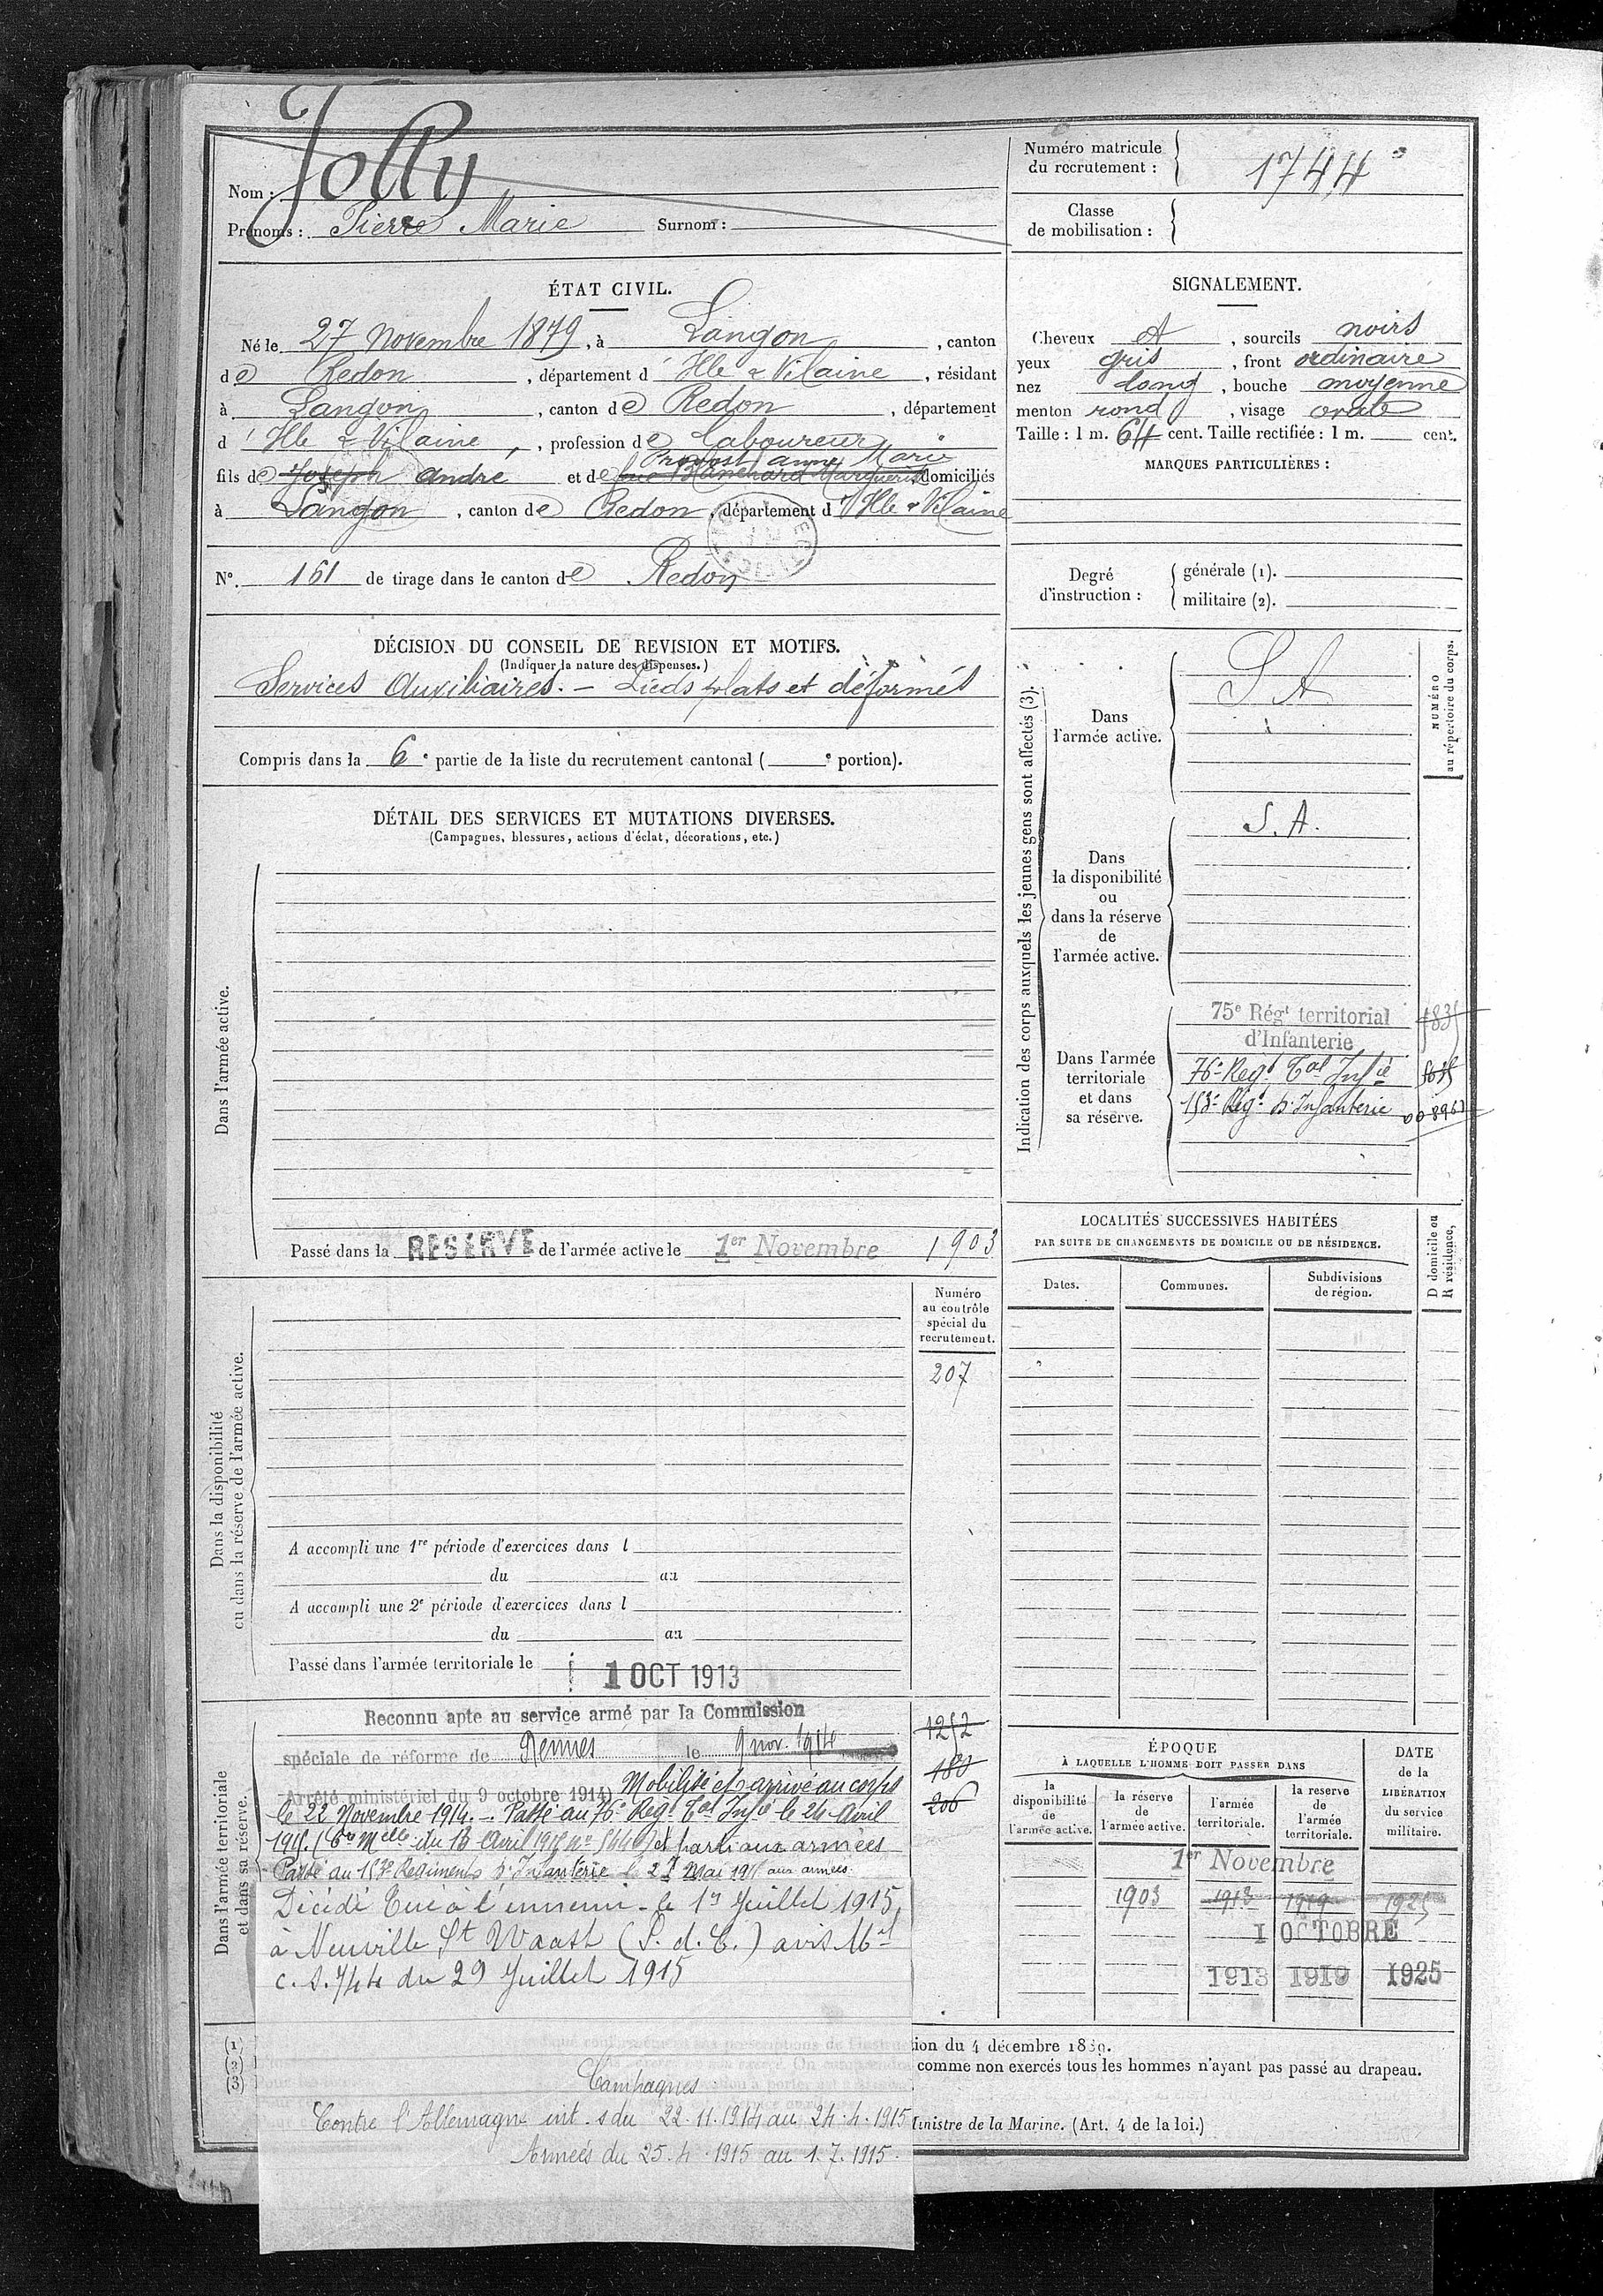 Nom : Jolly
Prénoms : Pierre Marie Surnom :
Numéro matricule du recrutement : 1744
Classe de mobilisation :
ÉTAT CIVIL.
Né le 27 Novembre 1879, à Langon, canton
de Redon, département d'Ille & Vilaine, résidant
à Langon, canton de Redon, département
d'Ille & Vilaine, profession de Laboureur
Provost Anne Marie
fils de Joseph André et de Blanchard Marguerite domiciliés
à Langon, canton de Redon, département d'Ille & Vilaine
N° 161 de tirage dans le canton de Redon
SIGNALEMENT.
Cheveux et, sourcils noirs
yeux gris, front ordinaire
nez long, bouche moyenne
menton rond, visage ovale
Taille : 1 m. 64 cent. Taille rectifiée : 1 m. cent.
MARQUES PARTICULIÈRES :
Degré d'instruction : générale (1).
militaire (2).
DÉCISION DU CONSEIL DE REVISION ET MOTIFS.
(Indiquer la nature des dispenses.)
Services Auxiliaires. – Pieds plats et déformés
Compris dans la 6e partie de la liste du recrutement cantonal ( e portion).
DÉTAIL DES SERVICES ET MUTATIONS DIVERSES.
(Campagnes, blessures, actions d'éclat, décorations, etc.)
Dans l'armée active.
Passé dans la RESERVE de l'armée active le 1er Novembre 1903
Indication des corps auxquels les jeunes gens sont affectés (3).
NUMÉRO
au répertoire du corps.
Dans
l'armée active.
S A
Dans
la disponibilité
ou
dans la réserve
de
l'armée active.
S. A.
Dans l'armée
territoriale
et dans
sa réserve.
75e Régt territorial
d'Infanterie
76e Regt Tal Infie
153e Régt d'Infanterie
LOCALITÉS SUCCESSIVES HABITÉES
PAR SUITE DE CHANGEMENTS DE DOMICILE OU DE RÉSIDENCE.
Dates.
Communes.
Subdivisions
de région.
D domicile ou
R résidence,
Dans la disponibilité
ou dans la réserve de l'armée active.
Numéro
au contrôle
spécial du
recrutement.
207
A accompli une 1re période d'exercices dans l
du au
A accompli une 2e période d'exercices dans l
du au
Passé dans l'armée territoriale le 1 OCT 1913
Dans l'armée territoriale
et dans sa réserve.
Reconnu apte au service armé par la Commission
spéciale de réforme de Rennes le 9 nov. 1914
Arrêté ministériel du 9 octobre 1914) Mobilisé et arrivé au corps
le 22 Novembre 1914. – Passé au 76e Regt Tal Infie le 24 Avril
et parti aux armées
Passé au 153e Régiment d'Infanterie
aux armées
Décédé Tué à l'ennemi – le 1er Juillet 1915
à Neuville St Waast (P. d. C.) avis Mel
du 29 Juillet 1915
1252
180
206
ÉPOQUE
À LAQUELLE L'HOMME DOIT PASSER DANS
la
disponibilité
de
l'armée active.
la réserve
de
l'armée active.
l'armée
territoriale.
la reserve
de
l'armée
territoriale.
DATE
de la
LIBÉRATION
du service
militaire.
1er Novembre
1903 1913 1919 1925
1 OCTOBRE
1913 1919 1925
(1)
(2)
(3)
tion du 4 décembre 1889.
comme non exercés tous les hommes n'ayant pas passé au drapeau.
Ministre de la Marine. (Art. 4 de la loi.)
Campagnes
Contre l'Allemagne int. s du 22.11.1914 au 24.4.1915
Armées du 25.4.1915 au 1.7.1915.